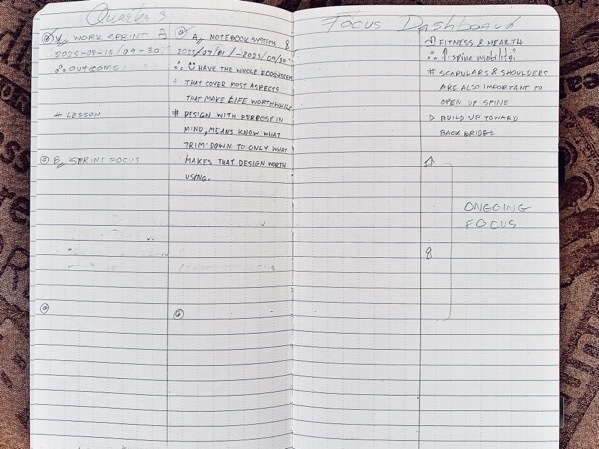 Quarter 3
WORK SPRINT
2025-08-15/09-30
∴ OUTCOME:
# LESSON
B// SPRINT FOCUS
A// NOTEBOOK SYSTEMS &
2025/07/01/-2025/09/30
∴ HAVE THE WHOLE ECOSYSTEM
THAT COVER MOST ASPECTS
THAT MAKE LIFE WORTHWHILE
# DESIGN WITH PURPOSE IN
MIND, MEANS KNOW WHAT
TRIM DOWN TO ONLY WHAT
MAKES THAT DESIGN WORTH
USING.
FOCUS DASHBOARD
FITNESS & HEALTH
∴ ↑ spine mobility!
# SCAPULARS & SHOULDERS
ARE ALSO IMPORTANT TO
OPEN UP SPINE
▷ BUILD UP TOWARD
BACK BRIDGE
ONGOING
FOCUS